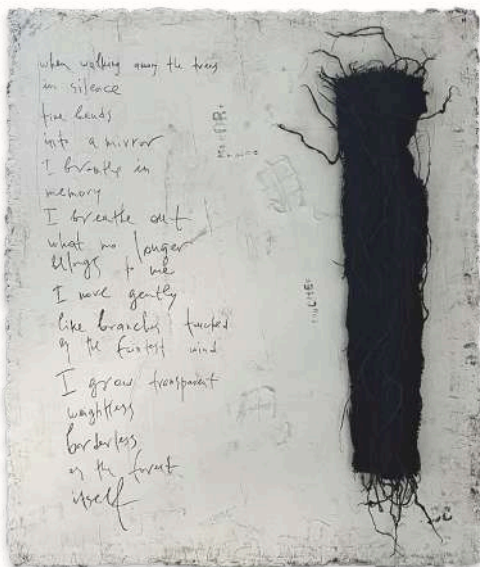 when walking among the trees
in silence
time bends
into a mirror
I breathe in
memory
I breathe out
what no longer
belongs to me
I move gently
like branches touched
by the faintest wind
I grow transparent
weightless
borderless
as the forest
itself